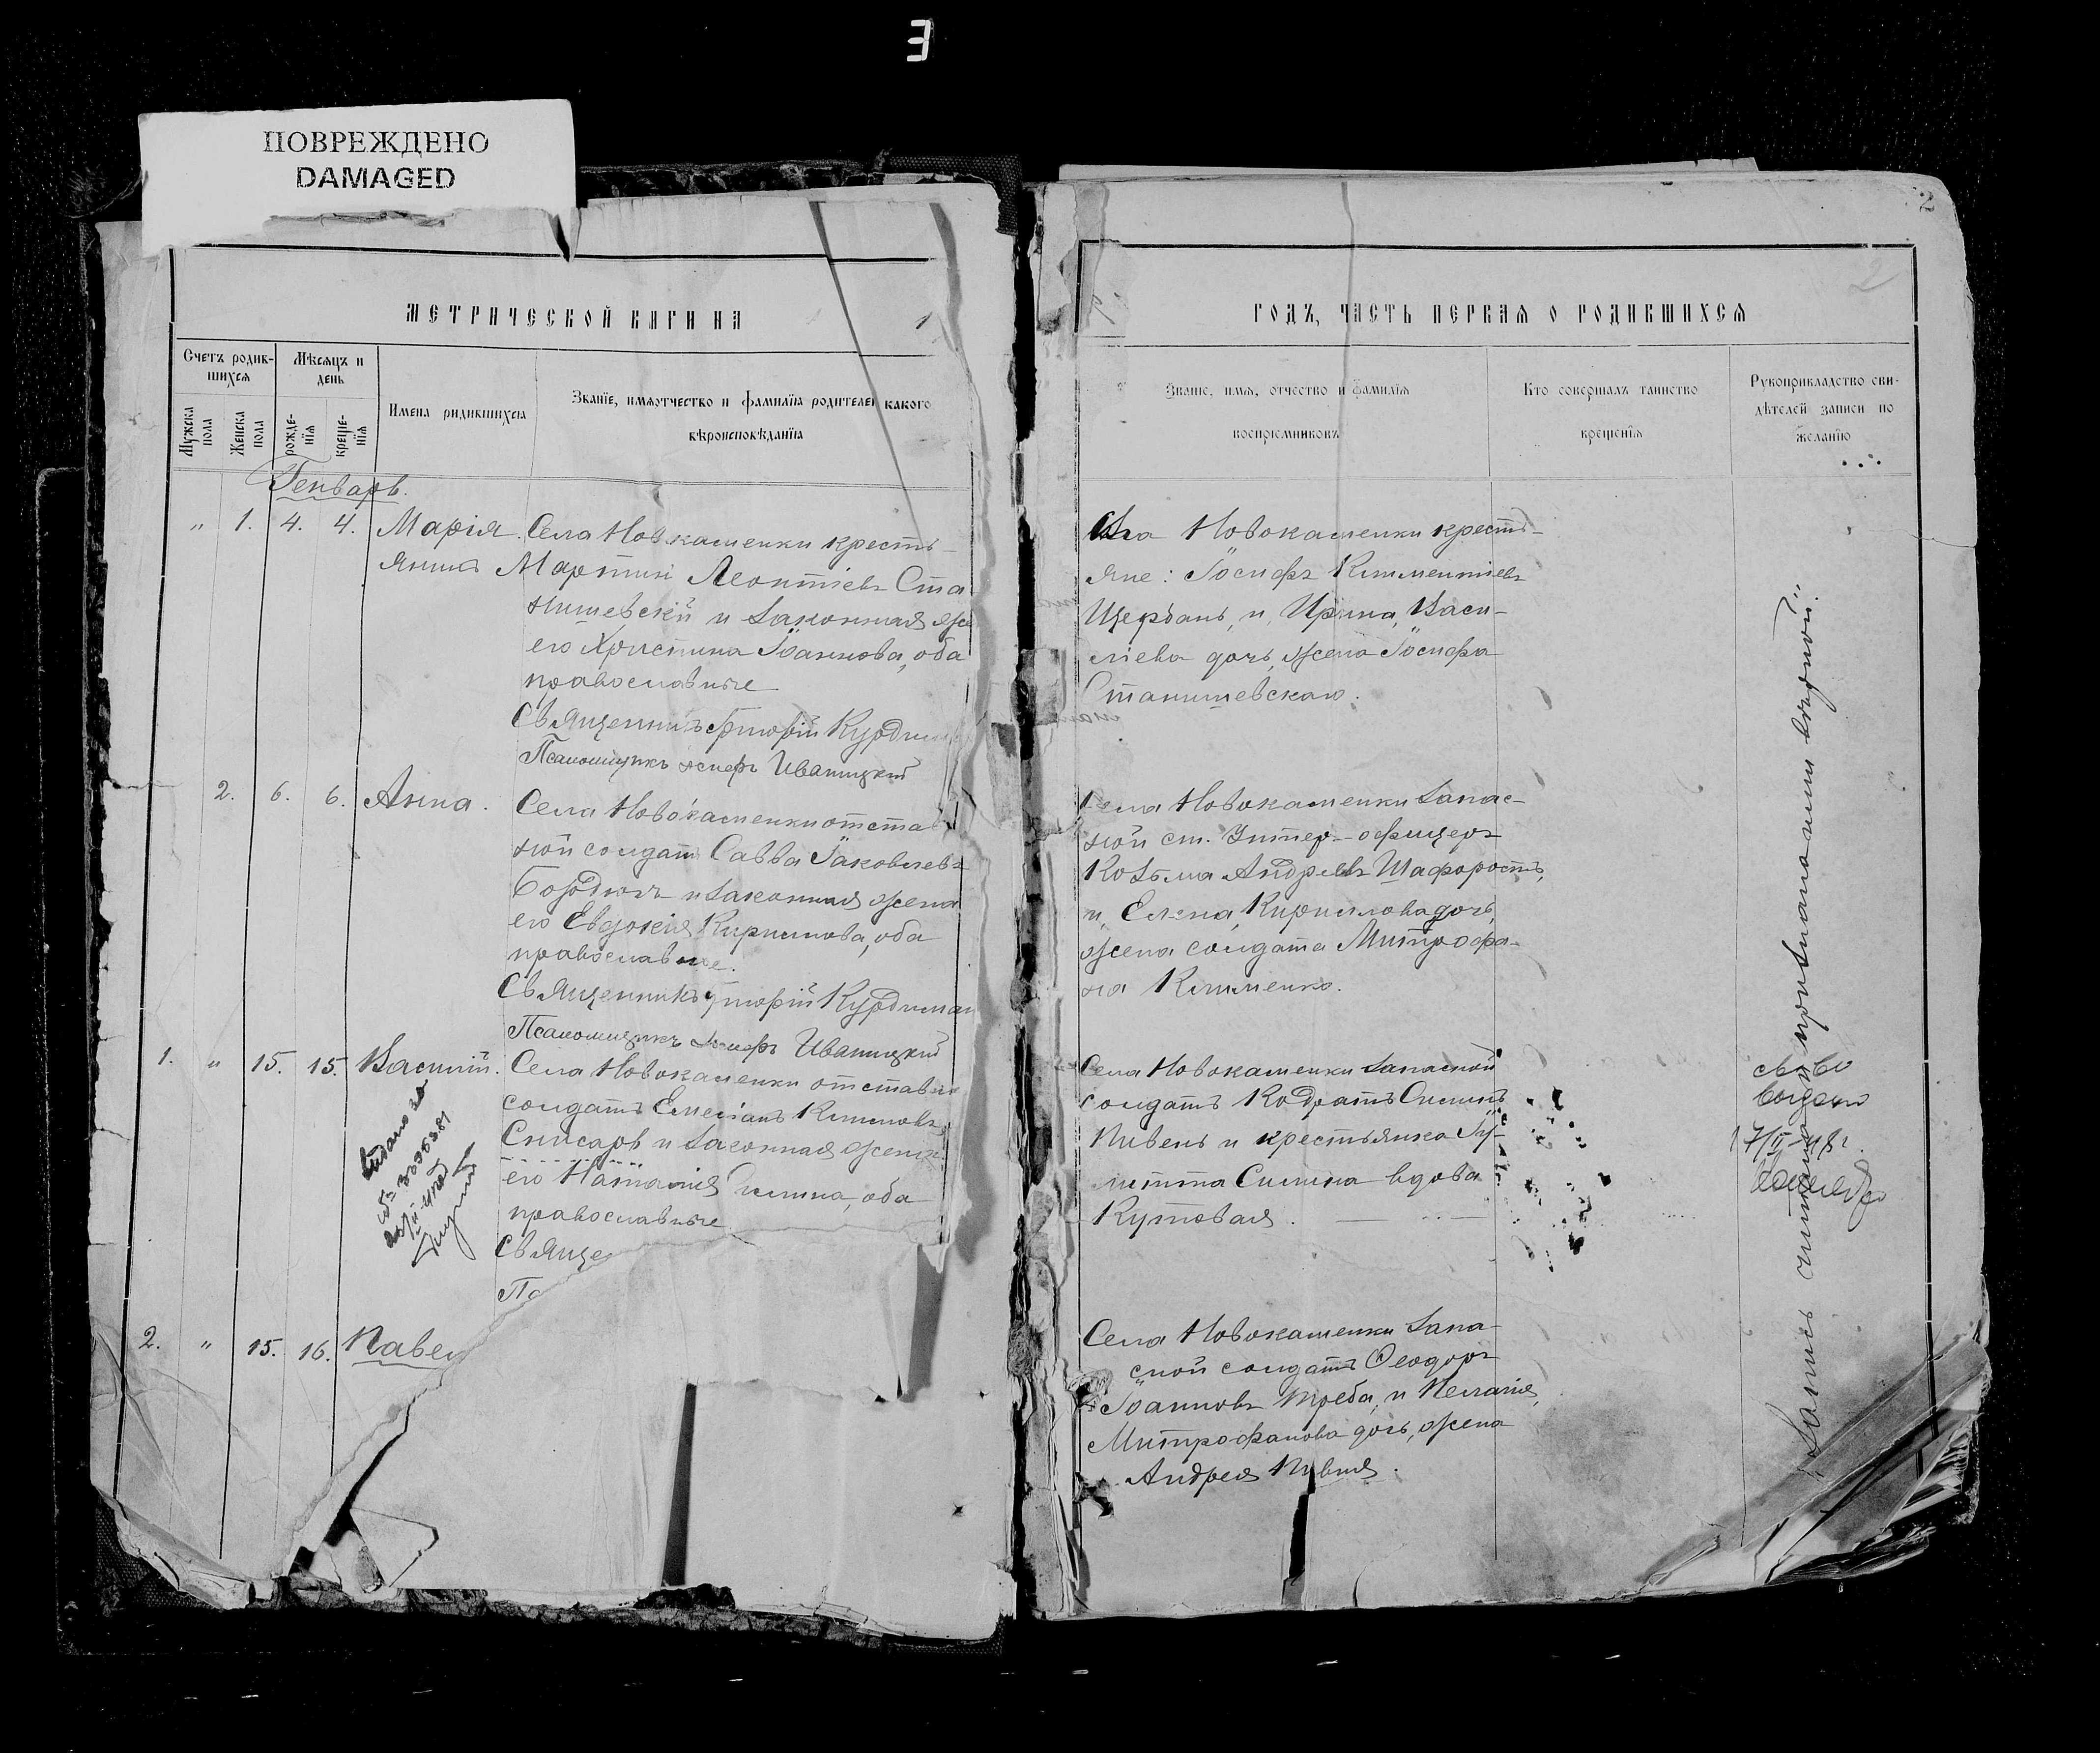 ПОВРЕЖДЕНО
DAMAGED
МЕТРИЧЕСКОЙ КНИГИ НА
Счетъ родив-
шихся
Мѣсяцъ и
день
Мужска
пола
Женска
пола
рожде-
нїя
креще-
нїя
Имена родившихся
Званїе, имя отчество и фамилїя родителей какого
вѣроисповѣданїя
Генварь.
" 1. 4. 4. Марія. Села Новокаменки кресть-
янинъ Мартинъ Леонтіевъ Ста
нишевскій и законная же
его Христина Іоаннова, оба
православные
Священникъ Григорій Курдиман
Псаломщикъ Іосифъ Иваницкій
2. 6. 6. Анна. Села Новокаменки отстав
ной солдатъ Савва Іаковлевъ
и законная жена
его Евдокія Кириллова, оба
православные.
Священникъ Григорій Курдиман
Псаломщикъ Іосифъ Иваницкій
1. " 15. 15. Василій. Села Новокаменки отставн
солдатъ Емеліанъ Климовъ
Снисарь и законная жена
его Наталія Силина, оба
православные
Свяще
Пс
2. " 15. 16. Павел
2
ГОДЪ, ЧАСТЬ ПЕРВАЯ О РОДИВШИХСЯ
Званїе, имя, отчество и фамилїя
воспрїемниковъ
Кто совершалъ таинство
крещенїя
Рукоприкладство сви-
дѣтелей записи по
желанїю
Села Новокаменки кресть-
яне: Іосифъ Климентіевъ
Щербань, и, Ирина, Васи-
ліева дочь, жена Іосифа
Станишевскаго.
Села Новокаменки запас-
ной ст. Унтер-офицеръ
Козьма Андреевъ Шафоростъ,
и, Елена, Кириллова дочь,
жена солдата Митрофа-
на Клименко.
Села Новокаменки запасной
солдатъ Кодратъ Силинъ
Пивень и крестьянка Іу-
литта Силина вдова
Кутовая.
Села Новокаменки запа-
сной солдатъ Ѳеодоръ
Іоанновъ Треба, и Пелагія,
Митрофанова дочь, жена
Андрея Пивня.